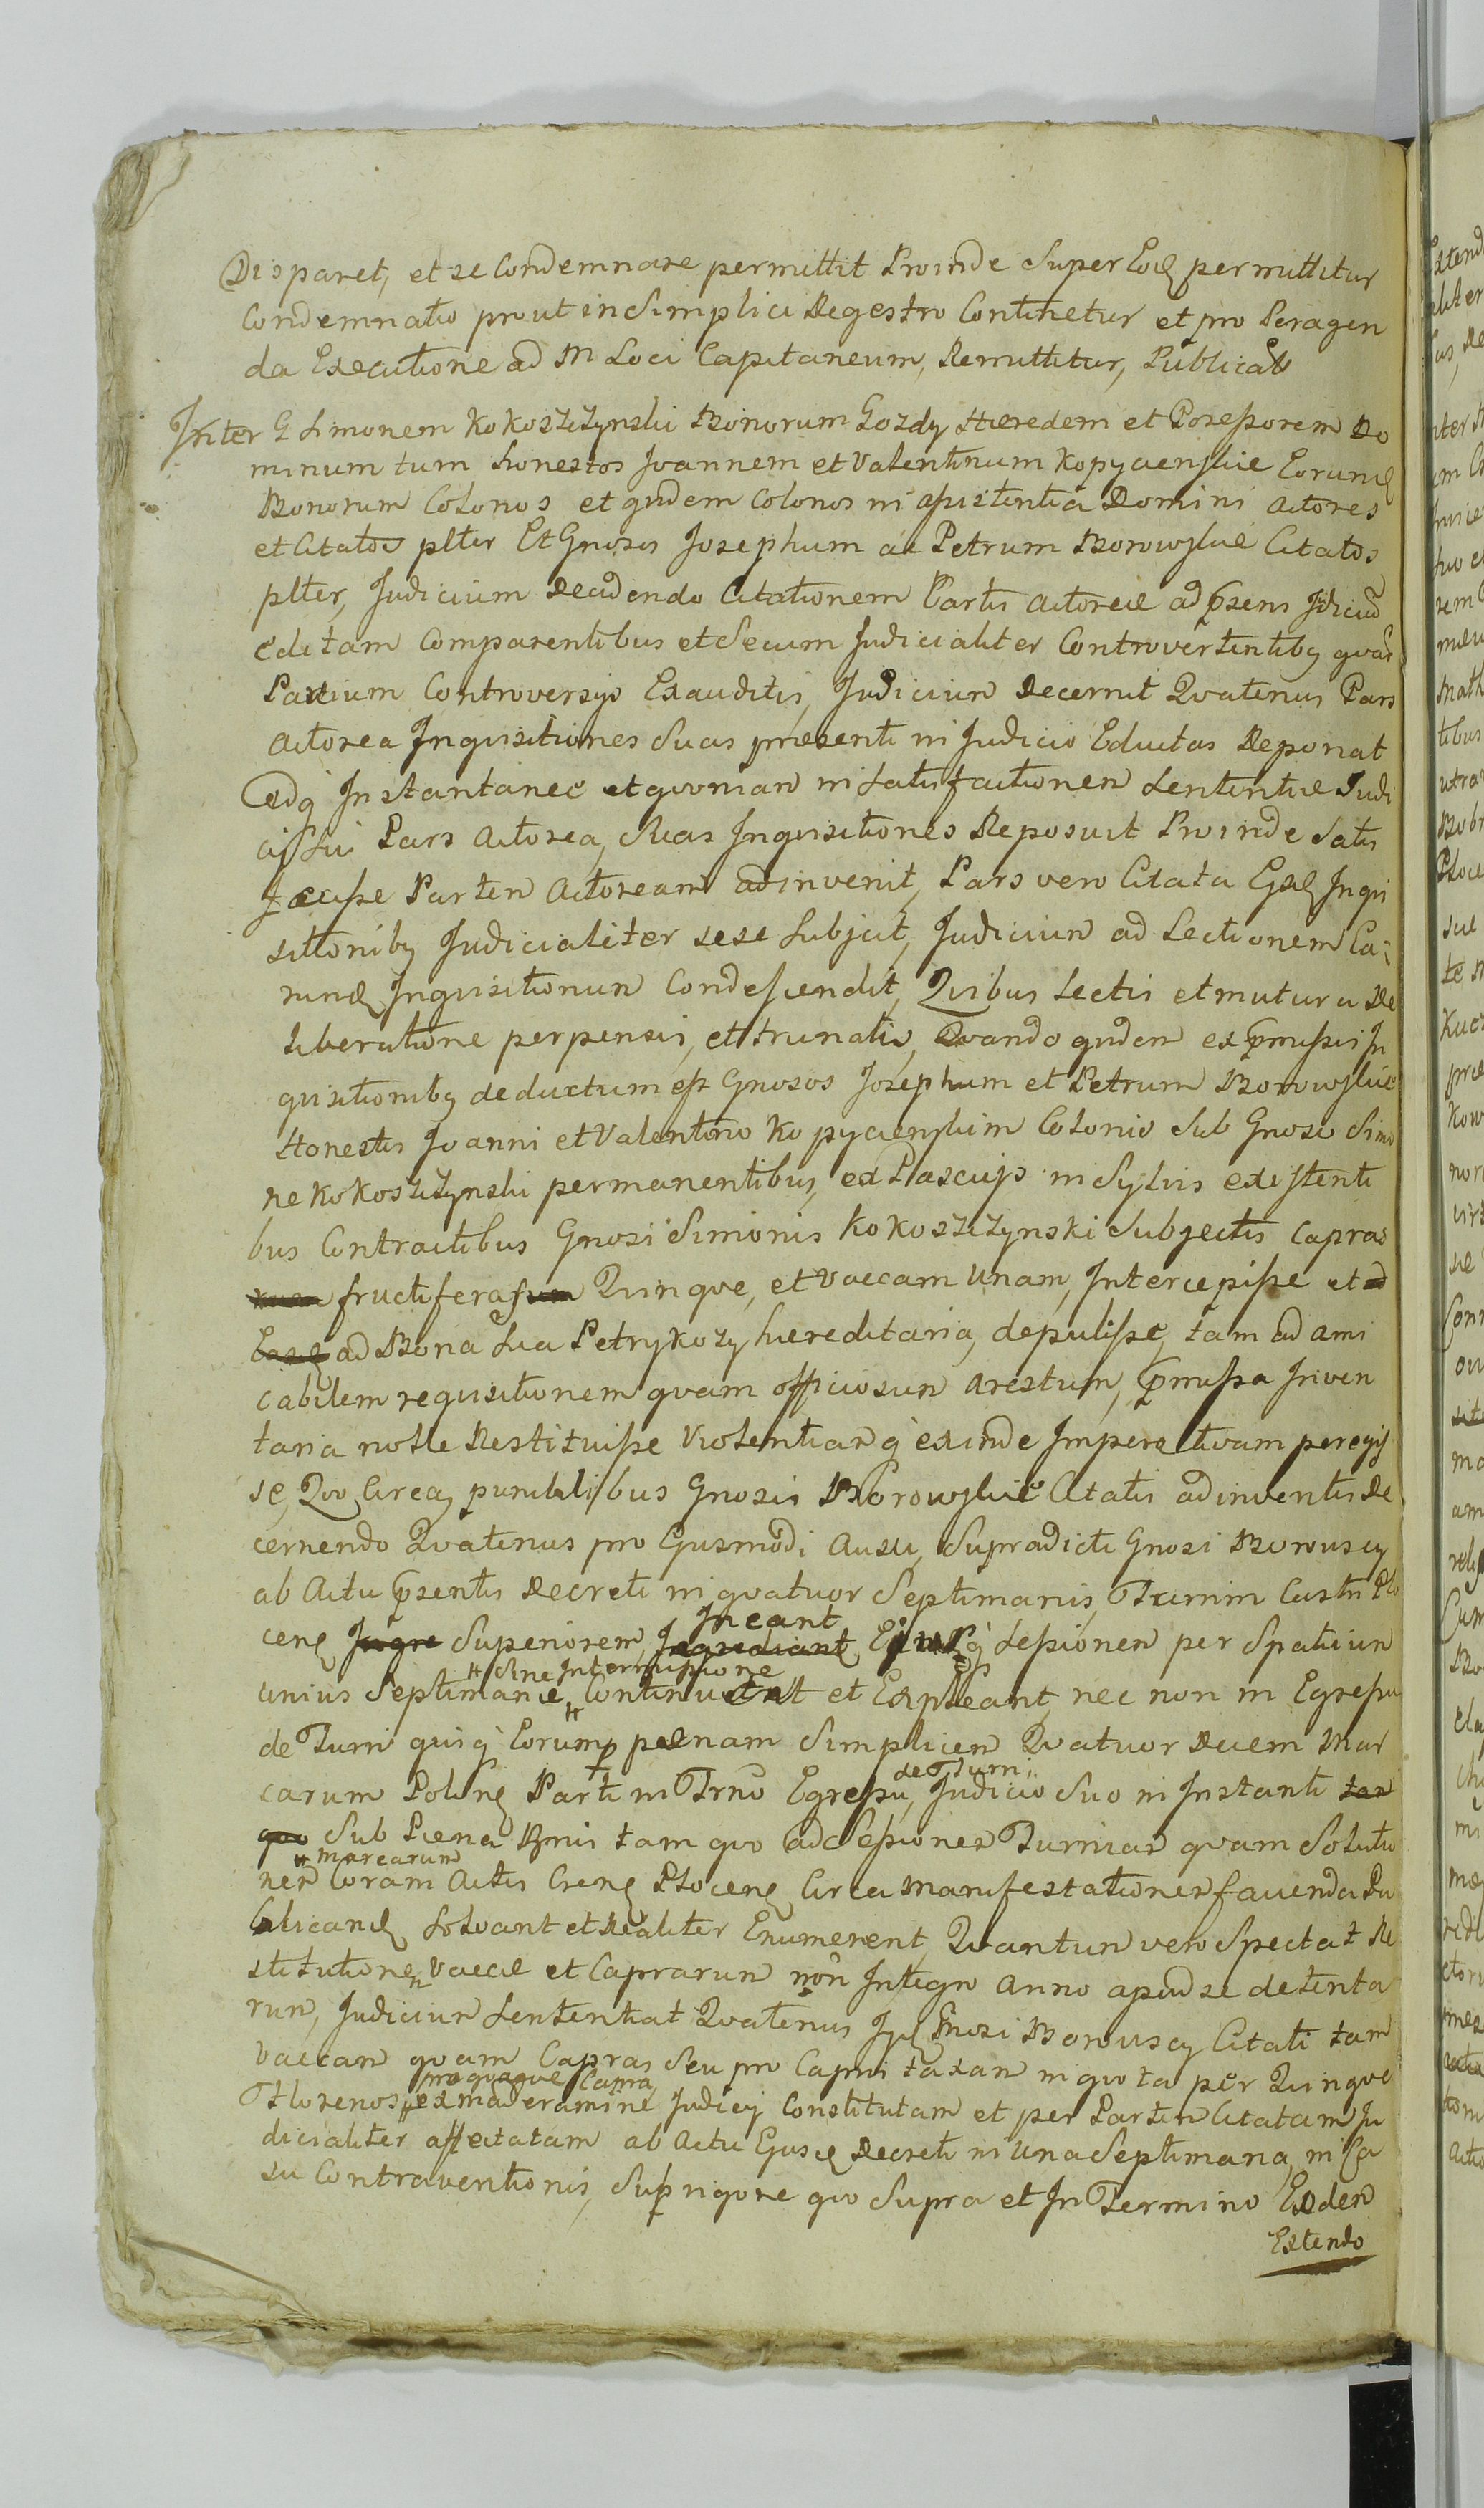 Disparet, et se Condemnare permittit Proinde Super Eod permittitur
Condemnatio prout in Simplici Regestro Continetur et pro Peragen
da Executione ad M Loci Capitaneum, Remittitur, Publicat
Inter G Simonem Kokoszczynski Bonorum Gozdy Hæredem et Possessorem Do
minum tum honestos Joannem et Valentinum Kopyczenskie Eorund
Bonorum Colonos et quidem Colonos in assistentia Domini Actores
et Citatos plter Et Gnosos Josephum ac Petrum Borowskie Citatos
plter, Judicium decidendo Citationem Partis Actoreæ ad psens Jdiciu
editam Comparentibus et Secum Judicialiter Controvertentibq quar
Partium Controversijs Exauditis, Judicium Decernit Qvatenus Pars
Actorea Inquisitiones Suas præsenti in Judicio Eductas Deponat
Idq Instantanee et qvoniam in Satisfactionem Sententiæ Judi
cij Sui Pars Actorea, Suas Inquisitiones Reposuit Proinde Satis
fecisse Partem Actoream adinvenit, Pars vero Citata Ejsd Inqui
sitionibq Judicialiter sese Subjcit, Judicium ad Lectionem Ea-
rund Inquisitionum Condescendit, Qvibus Lectis et mutura De
liberatione perpensis, et trunatis, Qvando quidem ex pmissis In
quisitionibq deductum est Gnosos Josephum et Petrum Borowskie
Honestis Joanni et Valentino Kopyczenskim Colonis Sub Gnoso Simo
ne Kokoszczynski permanentibus, ex Pascuijs in Sylvis existenti
bus Contractibus Gnosi Simonis Kokoszczynski Subjectis Capras
fructiferas Qvinqve, et Vaccam Unam, Intercepisse et
Easd ad Bona Sua Petrykozy hæreditaria, depulisse, tam ad ami
cabilem requisitionem qvam officiosum arestum, pmissa Inven
taria nolle Restituisse Violentiamq exinde Imperativam peregis
se, Qvo Circa, punibilibus Gnosis Borowskie Citatis adinventis De
cernendo Qvatenus pro Ejusmodi Ausu, Supradicti Gnosi Borowscy
ab Actu psentis Decreti in qvatuor Septimanis, Turrim Castri Plo
cen Ingre Superiorem, Ingrediant Ineant Ejusq Sessionem per Spatium
unius Septimanæ, Sine Interruptione Continuent et Expleant, nec non in Egressu
de Turri quiq Eorum pænam Simplicem Qvatuor Decem Mar
carum Polon Parti in Trno Egressu, de Turri Judicio Suo in Instanti tam
qvo Sub Pæna Bnis tam qvo ad Sessionem Turrium qvam Solutio
nem marcarum Coram Actis Cren Plocen Circa Manifestationem faciendam Pu
blicand Solvant et Realiter Enumerent, Qvantum vero Spectat Re
stitutionem Vaccæ et Caprarum non Integro Anno apud se detenta
rum, Judicium Sententiat Qvatenus Ijd Gnosi Borowscy Citati tam
Vaccam qvam Capras Seu pro Capris taxam in qvota per Qvinqve
Florenos, pro qvaqve Capra ex moderamine Judicij Constitutam et per Partem Citatam Ju
dicialiter affectatam ab Actu Ejusd Decreti in Una Septimana, in Ca
su Contraventionis, Sub rigore qvo Supra et In Termino Exden
Extendo